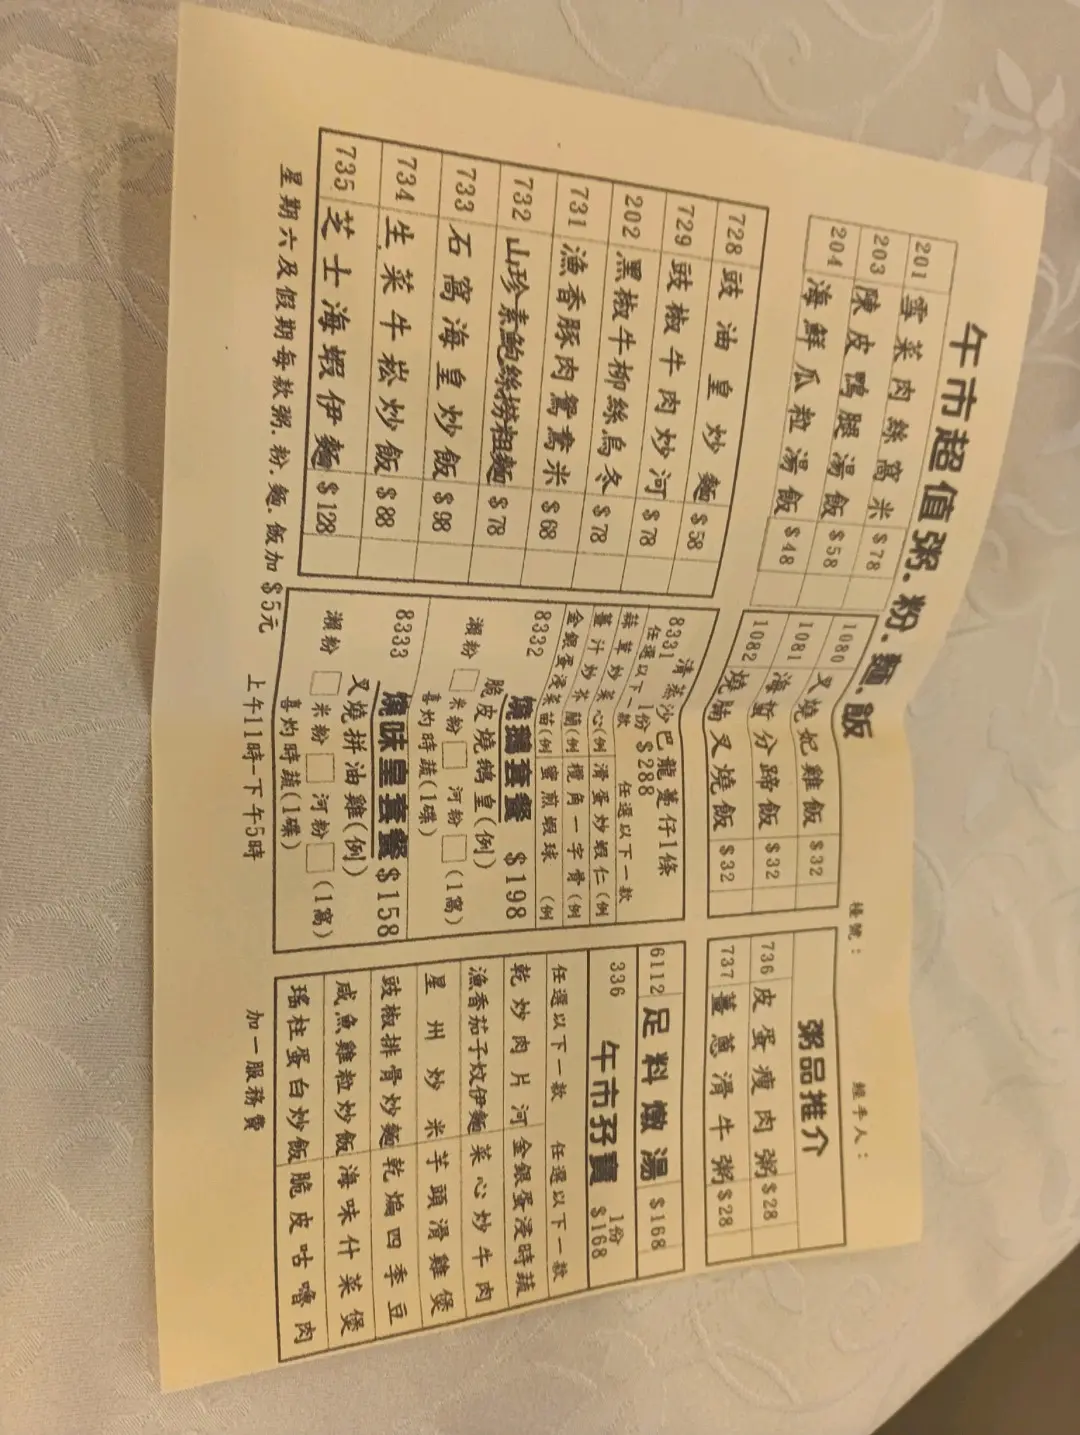 午市超值粥.粉.麵.飯
檯號：
經手人：
201 雪菜肉絲窩米 $78
203 陳皮鴨腿湯飯 $58
204 海鮮瓜粒湯飯 $48
1080 叉燒妃雞飯 $32
1081 海蜇分蹄飯 $32
1082 燒腩叉燒飯 $32
粥品推介
736 皮蛋瘦肉粥 $28
737 薑蔥滑牛粥 $28
728 豉油皇炒麵 $58
729 豉椒牛肉炒河 $78
202 黑椒牛柳絲烏冬 $78
731 漁香豚肉鴛鴦米 $68
732 山珍素鮑絲撈粗麵 $78
733 石窩海皇炒飯 $98
734 生菜牛松炒飯 $88
735 芝士海蝦伊麵 $128
清蒸沙巴龍躉仔1條
8331 1份 $288
任選以下一款 任選以下一款
蒜茸炒菜心(例 滑蛋炒蝦仁(例
薑汁炒芥蘭(例 欖角一字骨(例
金銀蛋浸菜苗(例 蜜煎蝦球 (例
8332 燒鵝套餐 $198
脆皮燒鵝皇(例)
瀨粉 □ 米粉 □ 河粉 □ (1窩)
喜灼時蔬(1碟)
8333 燒味皇套餐 $158
叉燒拼油雞(例)
瀨粉 □ 米粉 □ 河粉 □ (1窩)
喜灼時蔬(1碟)
6112 足料燉湯 $168
336 午市孖寶 1份 $168
任選以下一款 任選以下一款
乾炒肉片河 金銀蛋浸時蔬
漁香茄子炆伊麵 菜心炒牛肉
星州炒米 芋頭滑雞煲
豉椒排骨炒麵 乾煸四季豆
咸魚雞粒炒飯 海味什菜煲
瑤柱蛋白炒飯 脆皮咕嚕肉
星期六及假期每款粥.粉.麵.飯加$5元 上午11時-下午5時 加一服務費